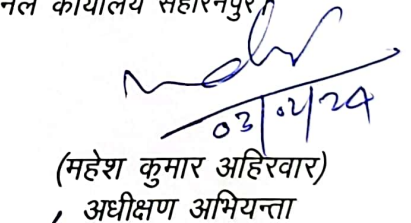 नल कार्यालय सहारनपुर।
03/02/24
(महेश कुमार अहिरवार)
अधीक्षण अभियन्ता